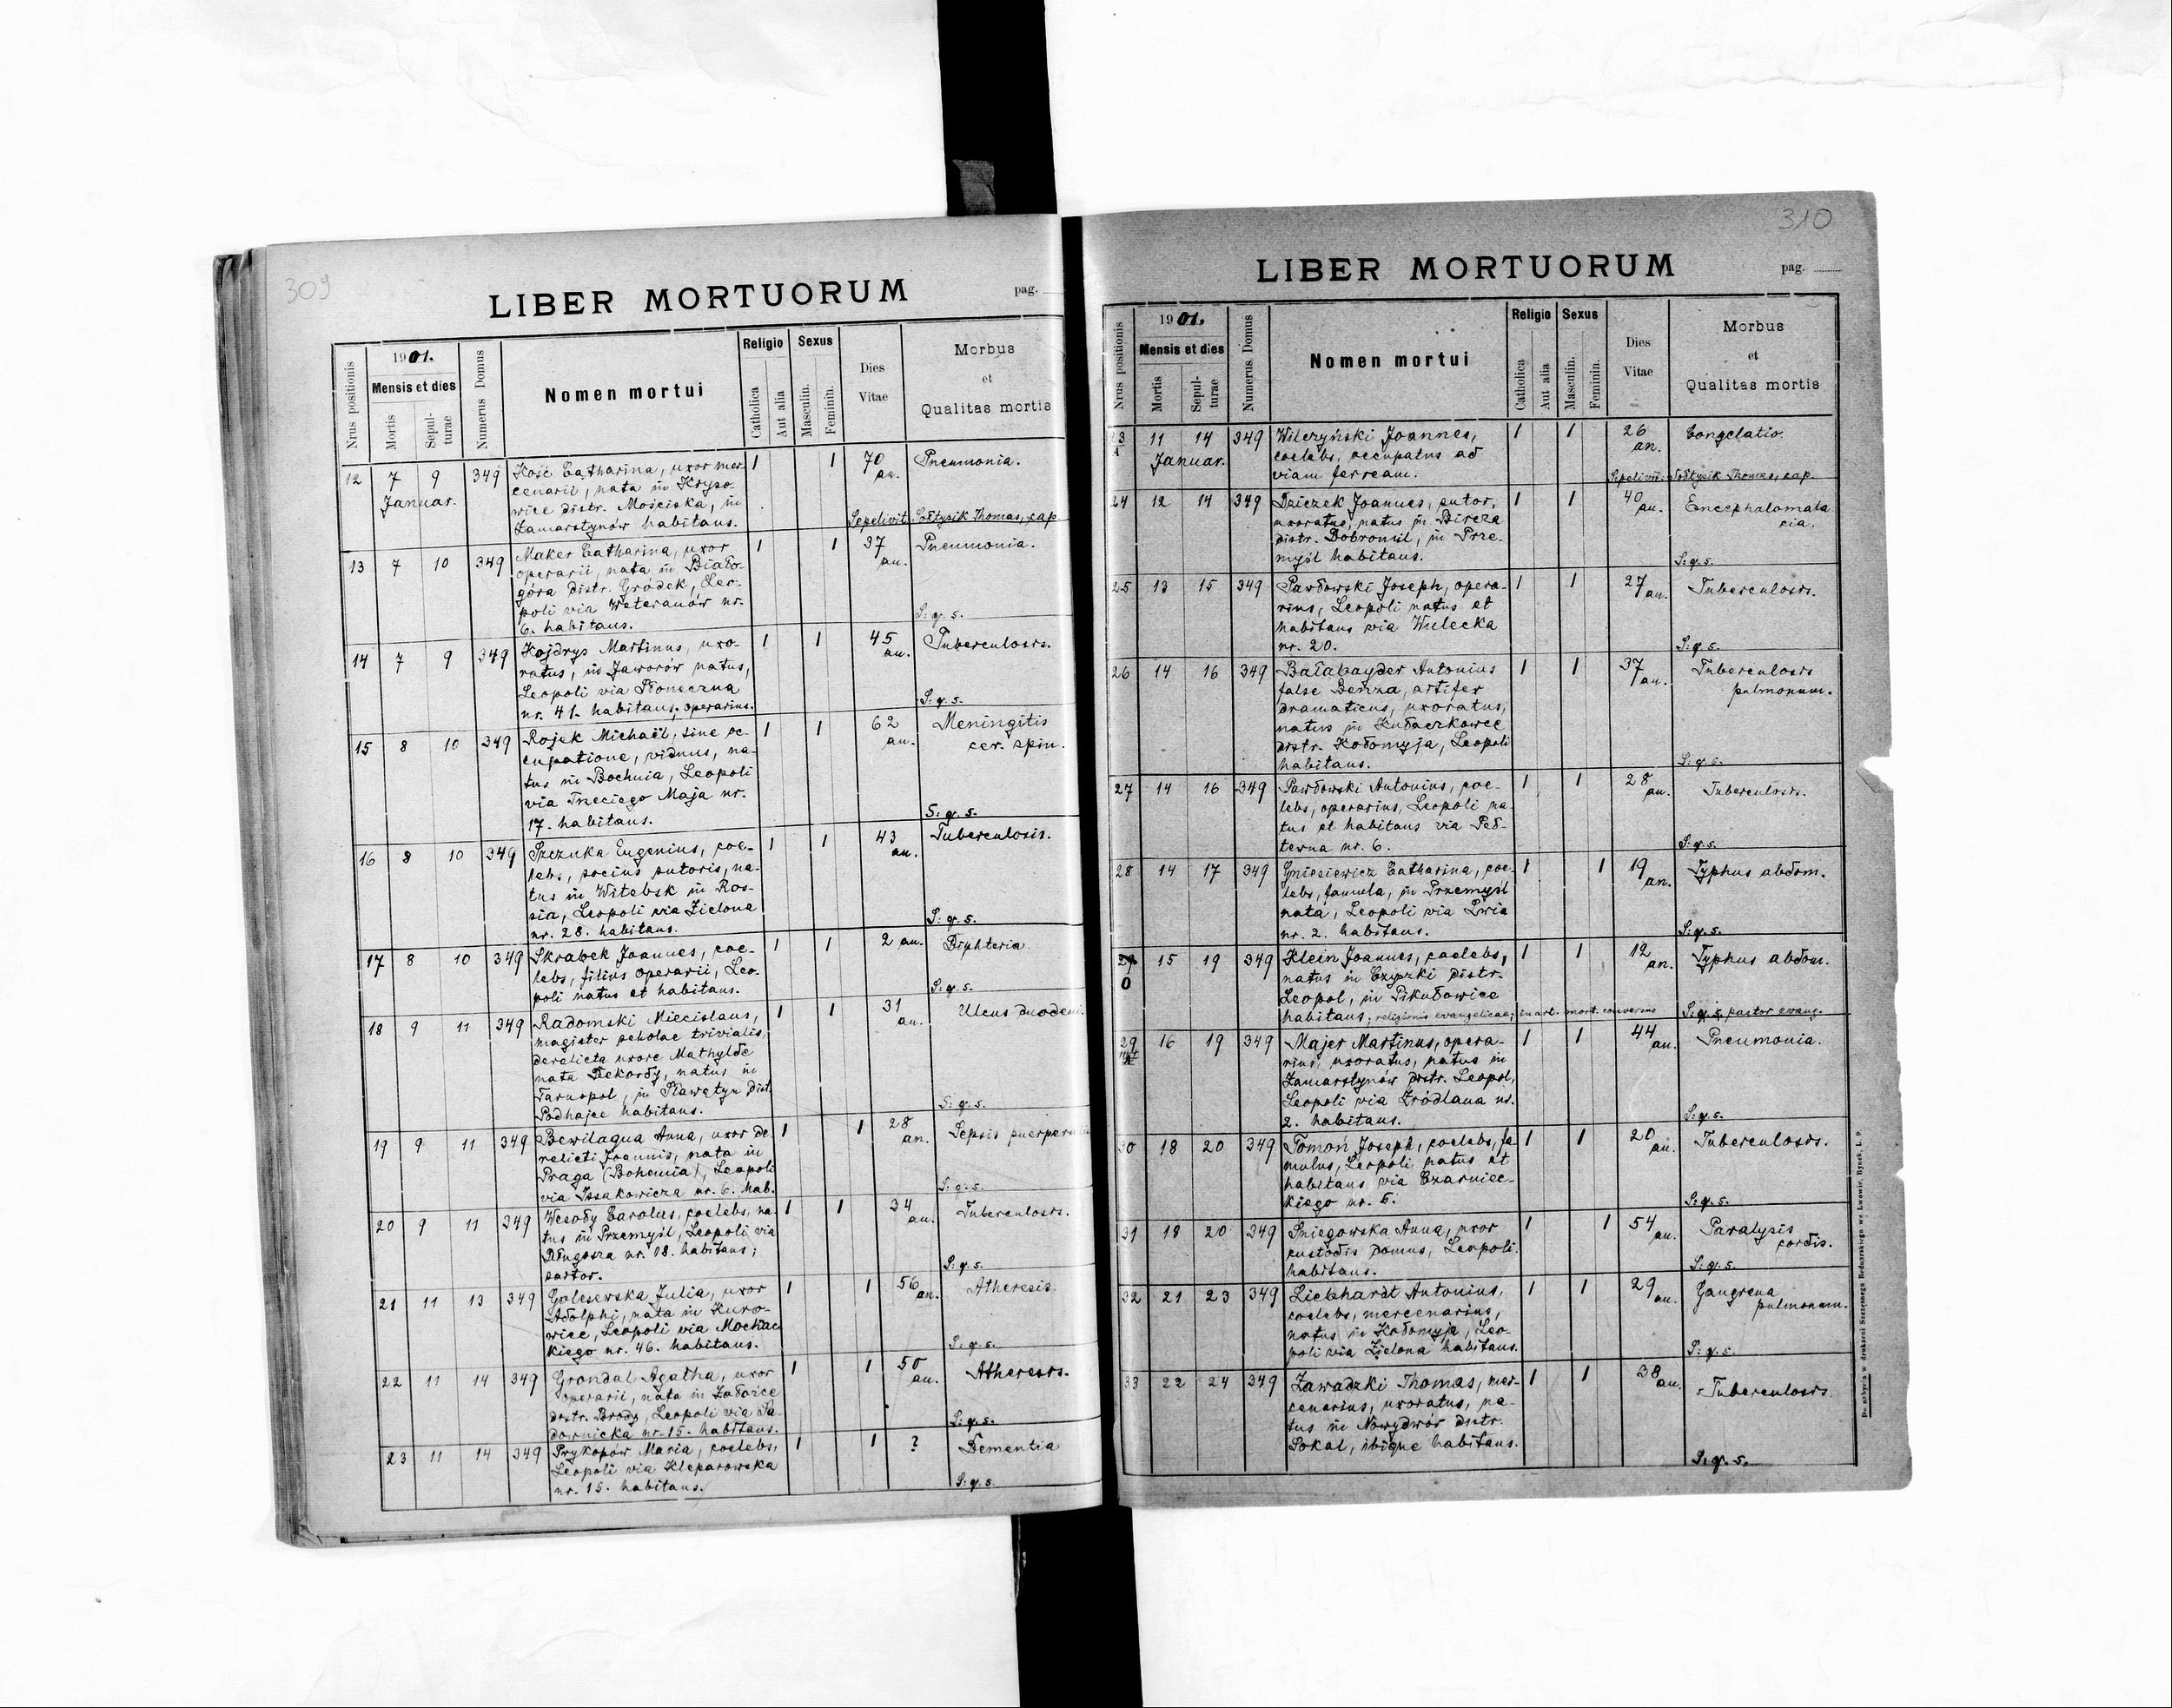 309
LIBER MORTUORUM
pag.
Nrus positionis
1901.
Mensis et dies
Mortis
Sepulturae
Numerus Domus
Nomen mortui
Religio
Catholica
Aut alia
Sexus
Masculin.
Feminin.
Dies Vitae
Morbus et Qualitas mortis
12 7 9 349 Kość Catharina, uxor mer- 1 1 70 an. Pneumonia.
Januar. cenarii, nata in Kryso-
wice distr. Mościska, in
Zamarstynów habitans. Sepelivit: Sołtysik Thomas, cap
13 7 10 349 Maker Catharina, uxor 1 1 37 an. Pneumonia.
operarii, nata in Biało-
góra distr. Gródek, Leo-
poli via Weteranów nr.
6. habitans. S: q. s.
14 7 9 349 Kojdrys Martinus, uxo- 1 1 45 an. Tuberculosis.
ratus, in Jaworów natus,
Leopoli via Słoneczna
nr. 41. habitans, operarius. S. q. s.
15 8 10 349 Rojek Michaël, sine oc- 1 1 62 an. Meningitis
cupatione, viduus, na- cer. spin.
tus in Bochnia, Leopoli
via Trzeciego Maja nr.
17. habitans. S: q. s.
16 8 10 349 Szczuka Eugenius, coe- 1 1 43 an. Tuberculosis.
lebs, socius sutoris, na-
tus in Witebsk in Ros-
sia, Leopoli via Zielona
nr. 28. habitans. S: q. s.
17 8 10 349 Skrabek Joannes, coe- 1 1 2 an. Diphteria
lebs, filius operarii, Leo-
poli natus et habitans. S: q. s.
18 9 11 349 Radomski Miecislaus, 1 1 31 an. Ulcus duodeni
magister scholae trivialis,
derelicta uxore Mathylde
nata, natus in
Tarnopol, in Sławętyn dist.
Podhajce habitans. S: q. s.
19 9 11 349 Bewilaqua Anna, uxor de- 1 1 28 an. Sepsis puerperalis
relicti Joannis, nata in
Praga (Bohemia), Leopoli
via Issakowicza nr. 6. hab. S: q. s.
20 9 11 349 Wesoły Carolus, coelebs, na- 1 1 34 an. Tuberculosis.
tus in Przemyśl, Leopoli via
Długosza nr. 18. habitans;
sartor. S: q. s.
21 11 13 349 Golesewska Julia, uxor 1 1 56 an. Atheresis.
Adolphi, nata in Kuro-
wice, Leopoli via Mochnac
kiego nr. 46. habitans. S: q. s.
22 11 14 349 Grondal Agatha, uxor 1 1 50 an. Atheresis.
operarii, nata in Załoźce
distr. Brody, Leopoli via Sa-
downicka nr. 15. habitans. S: q. s.
23 11 14 349 Prykopów Maria, coelebs, 1 1 ? Dementia
Leopoli via Kleparowska
nr. 15. habitans. S: q. s.
310
LIBER MORTUORUM
pag.
Nrus positionis
1901.
Mensis et dies
Mortis
Sepulturae
Numerus Domus
Nomen mortui
Religio
Catholica
Aut alia
Sexus
Masculin.
Feminin.
Dies Vitae
Morbus et Qualitas mortis
23 A 11 14 349 Wilczyński Joannes, 1 1 26 an. Congelatio.
Januar. coelebs, occupatus ad
viam ferream. Sepelivit: Sołtysik Thomas, cap.
24 12 14 349 Dziczek Joannes, sutor, 1 1 40 an. Encephalomala
uxoratus, natus in Bircza cia.
distr. Dobromil, in Prze-
myśl habitans. S: q. s.
25 13 15 349 Pawłowski Joseph, opera- 1 1 27 an. Tuberculosis.
rius, Leopoli natus et
habitans via Wulecka
nr. 20. S: q. s.
26 14 16 349 Bałabayder Antonius 1 1 37 an. Tuberculosis
false Benza, artifex pulmonum.
dramaticus, uxoratus,
natus in Kułaczkowce
distr. Kołomyja, Leopoli
habitans. S: q. s.
27 14 16 349 Pawłowski Antonius, coe- 1 1 28 an. Tuberculosis.
lebs, operarius, Leopoli na-
tus et habitans via Peł-
tewna nr. 6. S: q. s.
28 14 17 349 Gniesiewicz Catharina, coe- 1 1 19 an. Typhus abdom.
lebs, famula, in Przemyśl
nata, Leopoli via Lwia
nr. 2. habitans. S: q. s.
29 0 15 19 349 Klein Joannes, coelebs, 1 1 12 an. Typhus abdom.
natus in Czyżki distr.
Leopol, in Pikułowice
habitans; religionis evangelicae; in art. mort. conversus S: q. s. pastor evang.
29 16 19 349 Majer Martinus, opera- 1 1 44 an. Pneumonia.
rius, uxoratus, natus in
Zamarstynów distr. Leopol,
Leopoli via Źródlana nr.
2. habitans. S: q. s.
30 18 20 349 Tomoń Joseph, coelebs, fa- 1 1 20 an. Tuberculosis.
mulus, Leopoli natus et
habitans via Czarniec-
kiego nr. 5. S: q. s.
31 18 20 349 Śniegowska Anna, uxor 1 1 54 an. Paralysis
custodis domus, Leopoli cordis.
habitans. S: q. s.
32 21 23 349 Liebhardt Antonius, 1 1 29 an. Gangrena
coelebs, mercenarius, pulmonum.
natus in Kołomyja, Leo-
poli via Zielona habitans. S: q. s.
33 22 24 349 Zawadzki Thomas, mer- 1 1 38 an. Tuberculosis.
cenarius, uxoratus, na-
tus in Nowydwór distr.
Sokal, ibique habitans. S: q. s.
Do nabycia w drukarni Szczęsnego Bednarskiego we Lwowie, Rynek, l. 9.